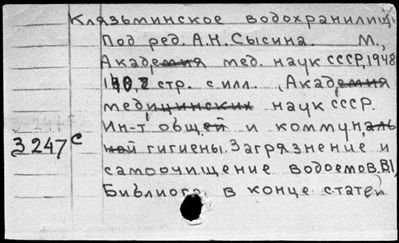 Клязьминское водохранилищ
Под ред. А.Н. Сысина. М.,
Академия мед. наук СССР, 1948
192 стр. с илл. (Академия
медицинских наук СССР.
Ин-т общей и коммуналь
3247 С ной гигиены. Загрязнение и
самоочищение водоемов. В1)
Библиогр. в конце статей